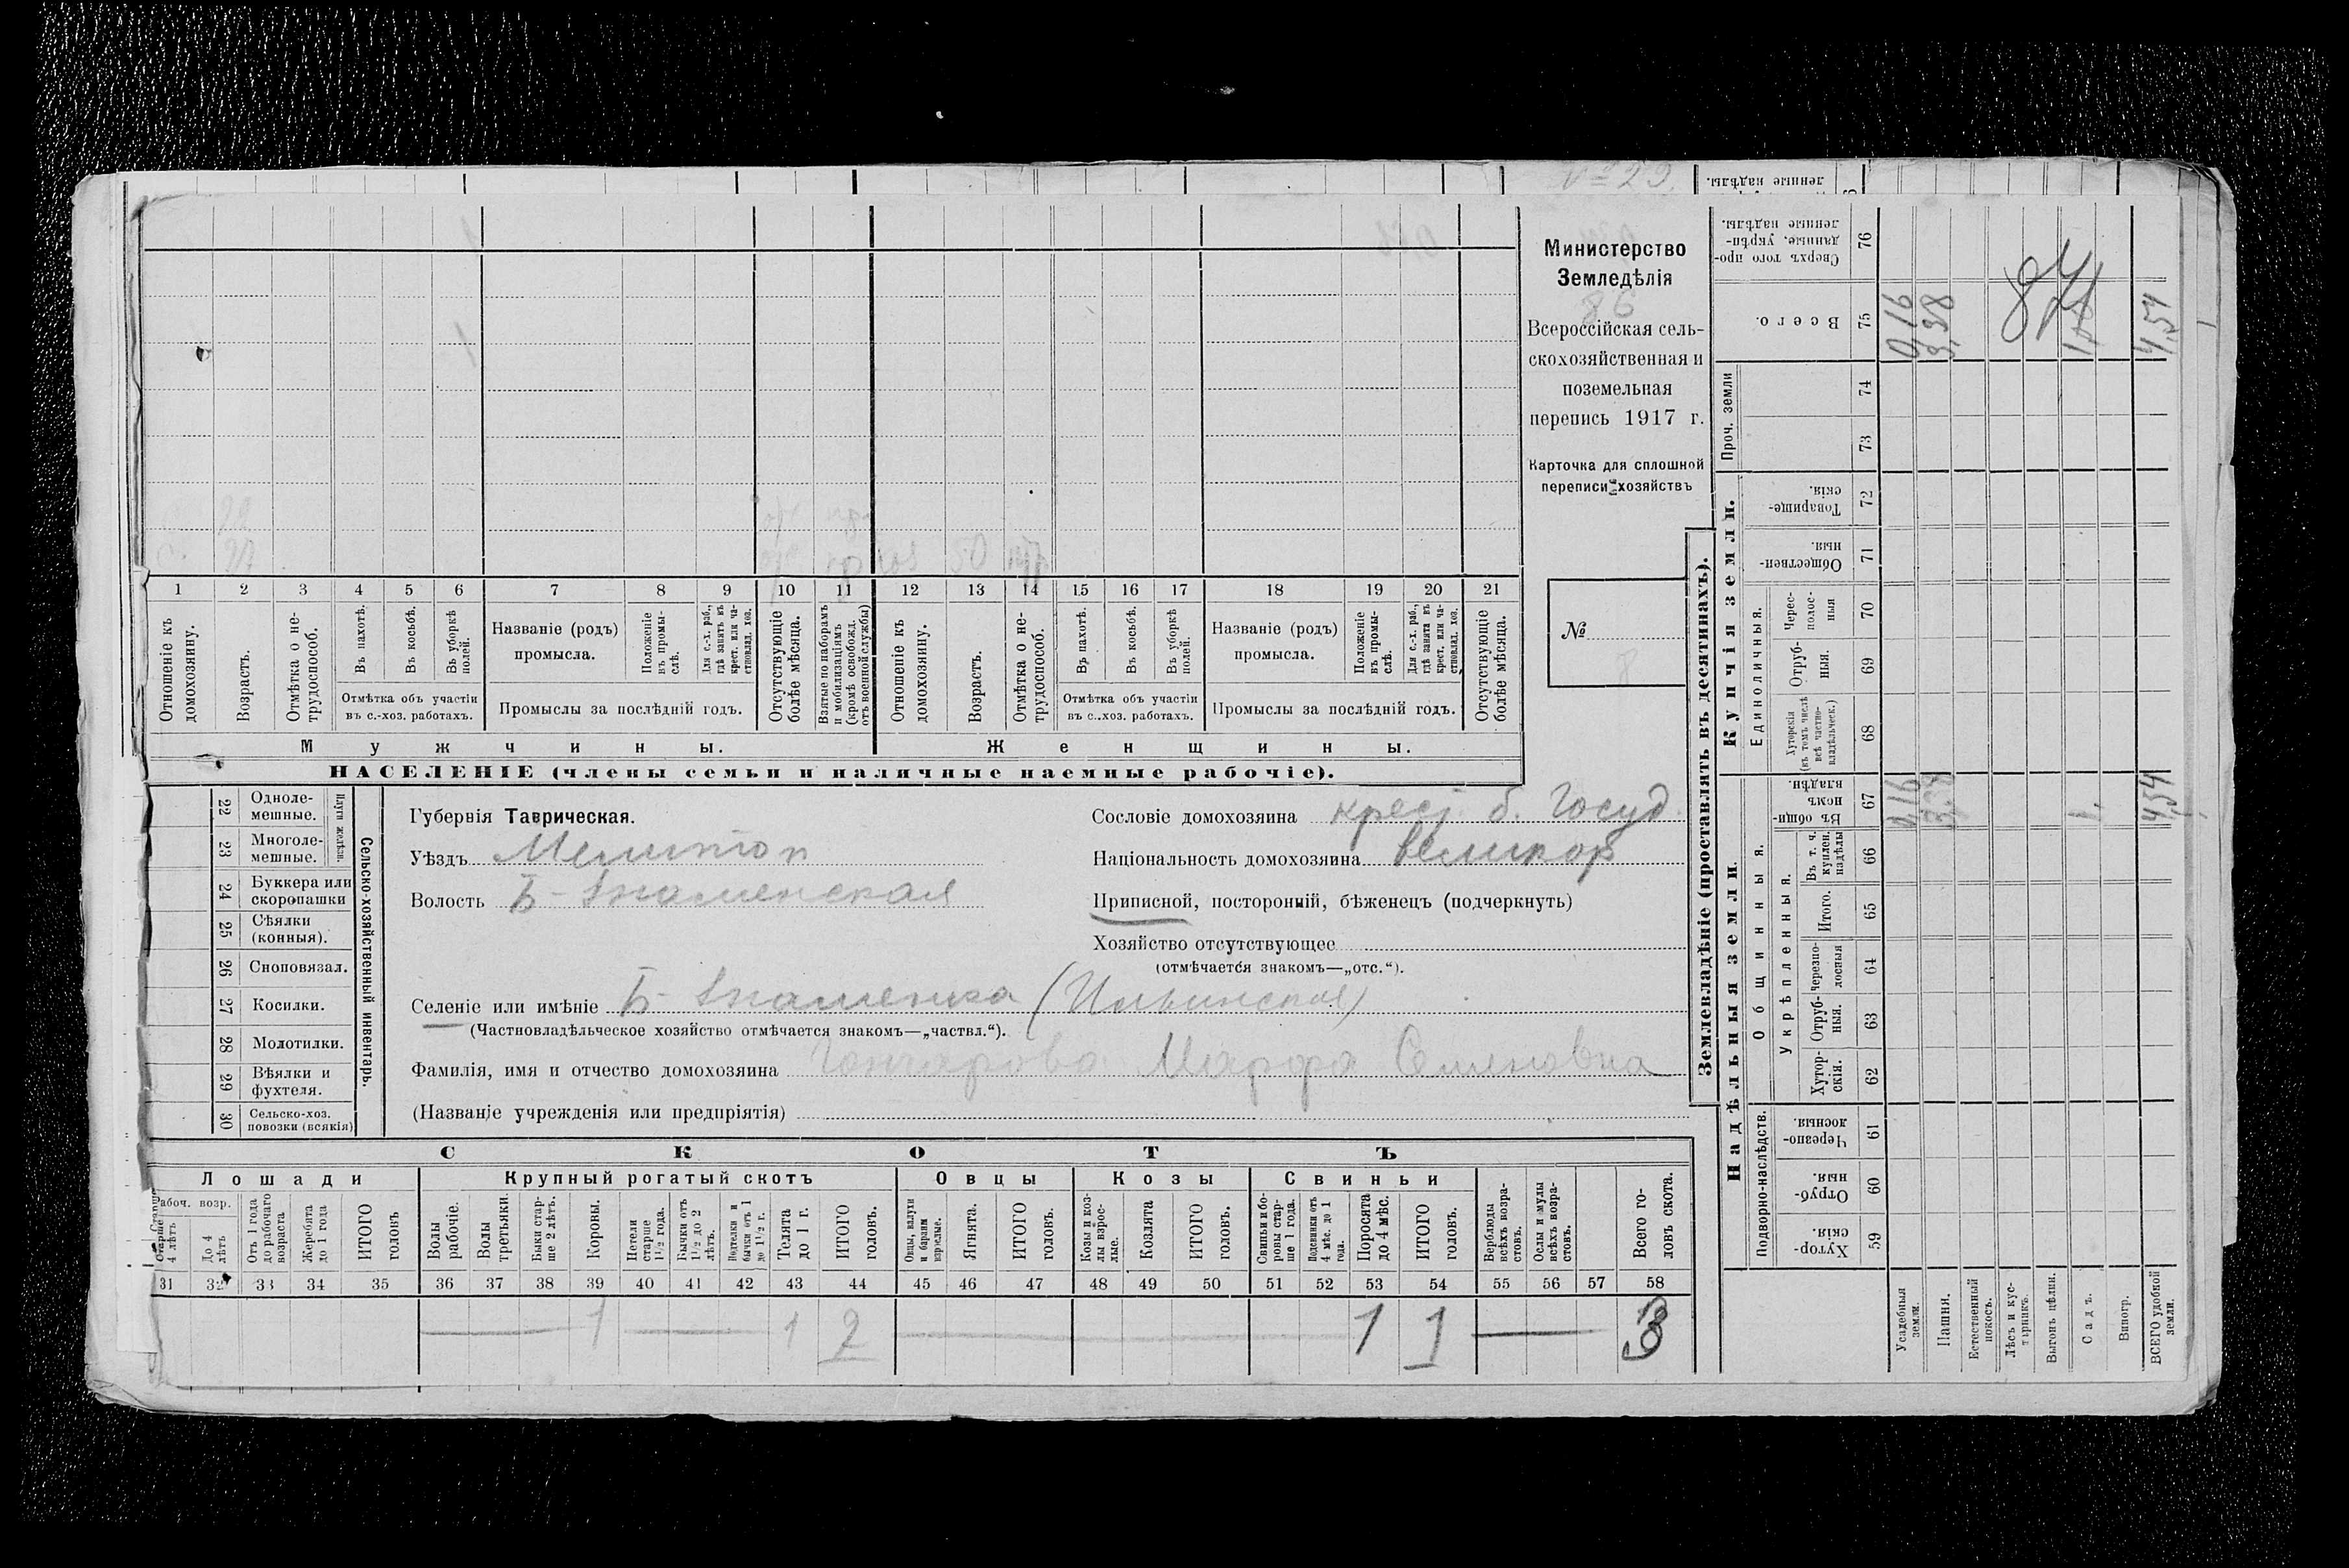 № 29.
Министерство
Земледѣлія
86
Всероссійская сель-
скохозяйственная и
поземельная
перепись 1917 г.
Карточка для сплошной
переписи хозяйствъ
№
50
1 2 3 4 5 6 7 8 9 10 11 12 13 14 15 16 17 18 19 20 21
Отношеніе къ домохозяину.
Возрастъ.
Отмѣтка о не-трудоспособ.
Въ пахотѣ.
Въ косьбѣ.
Въ уборкѣ полей.
Отмѣтка объ участіи
въ с.-хоз. работахъ.
Названіе (родъ)
промысла.
Положеніе въ промы-слѣ.
Для с.-х. раб., гдѣ занятъ въ крест. или ча-стновлад. хоз.
Промыслы за послѣдній годъ.
Отсутствующіе болѣе мѣсяца.
Взятые по наборамъ и мобилизаціямъ (кромѣ освобожд. отъ военной службы)
Отношеніе къ домохозяину.
Возрастъ.
Отмѣтка о не-трудоспособ.
Въ пахотѣ.
Въ косьбѣ.
Въ уборкѣ полей.
Отмѣтка объ участіи
въ с..хоз. работахъ.
Названіе (родъ)
промысла.
Положеніе въ промы-слѣ.
Для с.-х. раб., гдѣ занята въ крест. или ча-стновлад. хоз.
Промыслы за послѣдній годъ.
Отсутствующіе болѣе мѣсяца.
Мужчины.
Женщины.
НАСЕЛЕНІЕ (члены семьи и наличные наемные рабочіе).
22 Одноле-мешные.
23 Многоле-мешные.
Плуги желѣзн.
24 Буккера или скоропашки
25 Сѣялки (конныя).
26 Сноповязал.
27 Косилки.
28 Молотилки.
29 Вѣялки и фухтеля.
30 Сельско-хоз. повозки (всякія)
Сельско-хозяйственный инвентарь.
Губернія Таврическая.
Уѣздъ Мелитоп
Волость Б-Знаменская
Сословіе домохозяина крест. б. Госуд.
Національность домохозяина великор
Приписной, посторонній, бѣженецъ (подчеркнуть)
Хозяйство отсутствующее
(отмѣчается знакомъ—„отс.“).
Селеніе или имѣніе Б-Знаменка (Ильинская)
(Частновладѣльческое хозяйство отмѣчается знакомъ—„частвл.“).
Фамилія, имя и отчество домохозяина Гончарова Марфа Семеновна
(Названіе учрежденія или предпріятія)
СКОТЪ
Лошади
Крупный рогатый скотъ
Овцы
Козы
Свиньи
Рабоч. возр.
Старше 4 лѣтъ
До 4 лѣтъ
Отъ 1 года до рабочаго возраста
Жеребята до 1 года
ИТОГО головъ
Волы рабочіе.
Волы третьяки.
Быки стар-ше 2 лѣтъ.
Коровы.
Нетели старше 1½ года.
Бычки отъ 1½ до 2 лѣтъ.
Подтелки и бычки отъ 1 до 1½ г.
Телята до 1 г.
ИТОГО головъ.
Овцы, валухи и бараны взрослые.
Ягнята.
ИТОГО головъ.
Козы и коз-лы взрос-лые.
Козлята
ИТОГО головъ.
Свиньи и бо-ровы стар-ше 1 года.
Подсвинки отъ 4 мѣс. до 1 года.
Поросята до 4 мѣс.
ИТОГО головъ.
Верблюды всѣхъ возра-стовъ.
Ослы и мулы всѣхъ возра-стовъ.
Всего го-ловъ скота.
31 32 33 34 35 36 37 38 39 40 41 42 43 44 45 46 47 48 49 50 51 52 53 54 55 56 57 58
1 1 2 1 1 3
Землевладѣніе (проставлять въ десятинахъ).
Надѣльныя земли.
Купчія земли.
Проч. земли
Подворно-наслѣдств.
Общинныя.
Укрѣпленныя.
Единоличныя.
Сверхъ того про-данные, укрѣп-ленные надѣлы. 76
Всего. 75
74
73
Товарище-скія. 72
Обществен-ныя. 71
Черес-полос-ныя 70
Отруб-ныя. 69
Хуторскія (въ томъ числѣ всѣ частно-владѣльческ.) 68
Въ общи-номъ владѣн. 67
Въ т. ч. куплен. надѣлы 66
Итого. 65
Черезпо-лосныя 64
Отруб-ныя. 63
Хутор-скія. 62
Черезпо-лосныя. 61
Отруб-ныя. 60
Хутор-скія. 59
Усадебныя земли.
Пашни.
Естественный покосъ.
Лѣсъ и кус-тарникъ.
Выгонъ цѣлин.
Садъ.
Виногр.
ВСЕГО удобной земли.
0,16
3,38
4,54
0,16
3,38
1,
4,54